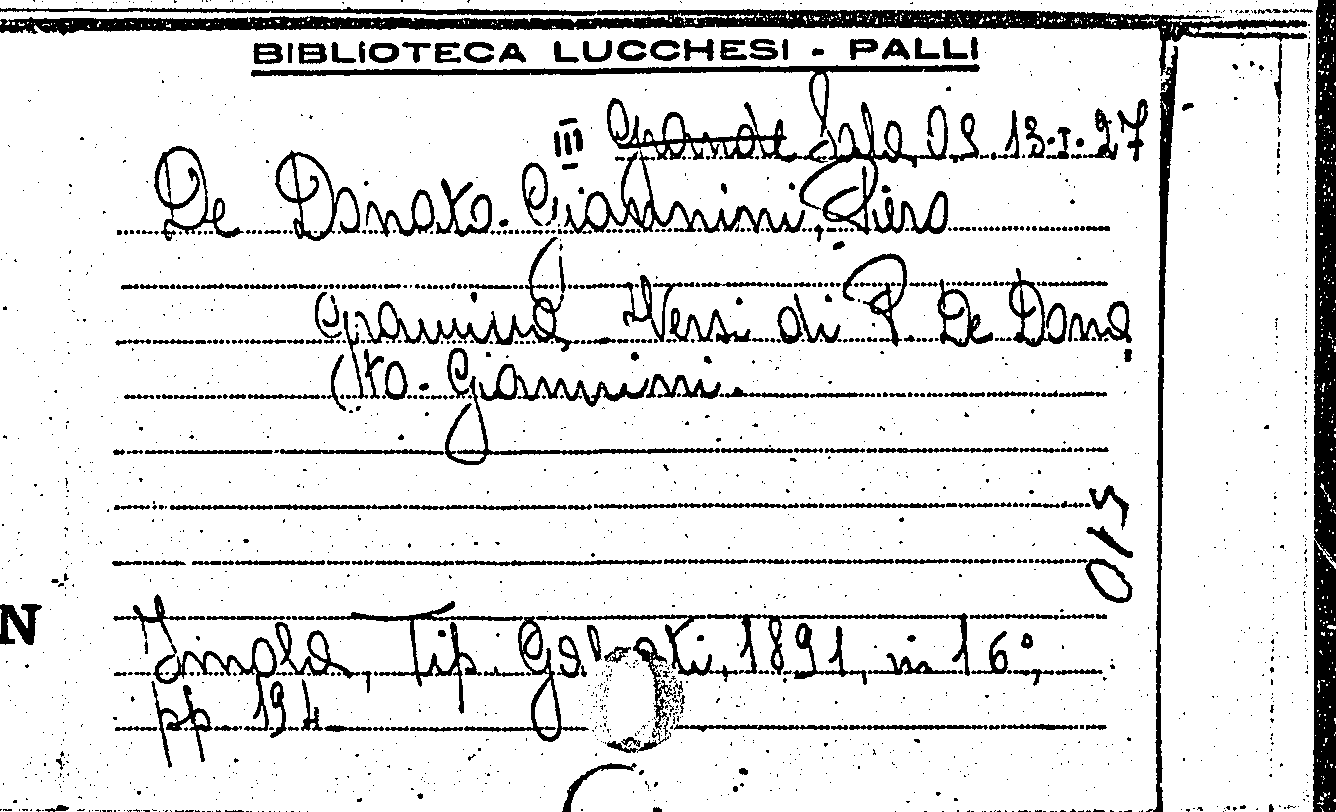 BIBLIOTECA LUCCHESI - PALLI
III Grande Sala, O.S. 13-I-27
De Donato-Giannini, Piero
Gramina. Versi di P. De Dona
to-Giannini.
015
N
Imola, Tip. Galeati, 1891, in 16°,
pp. 194